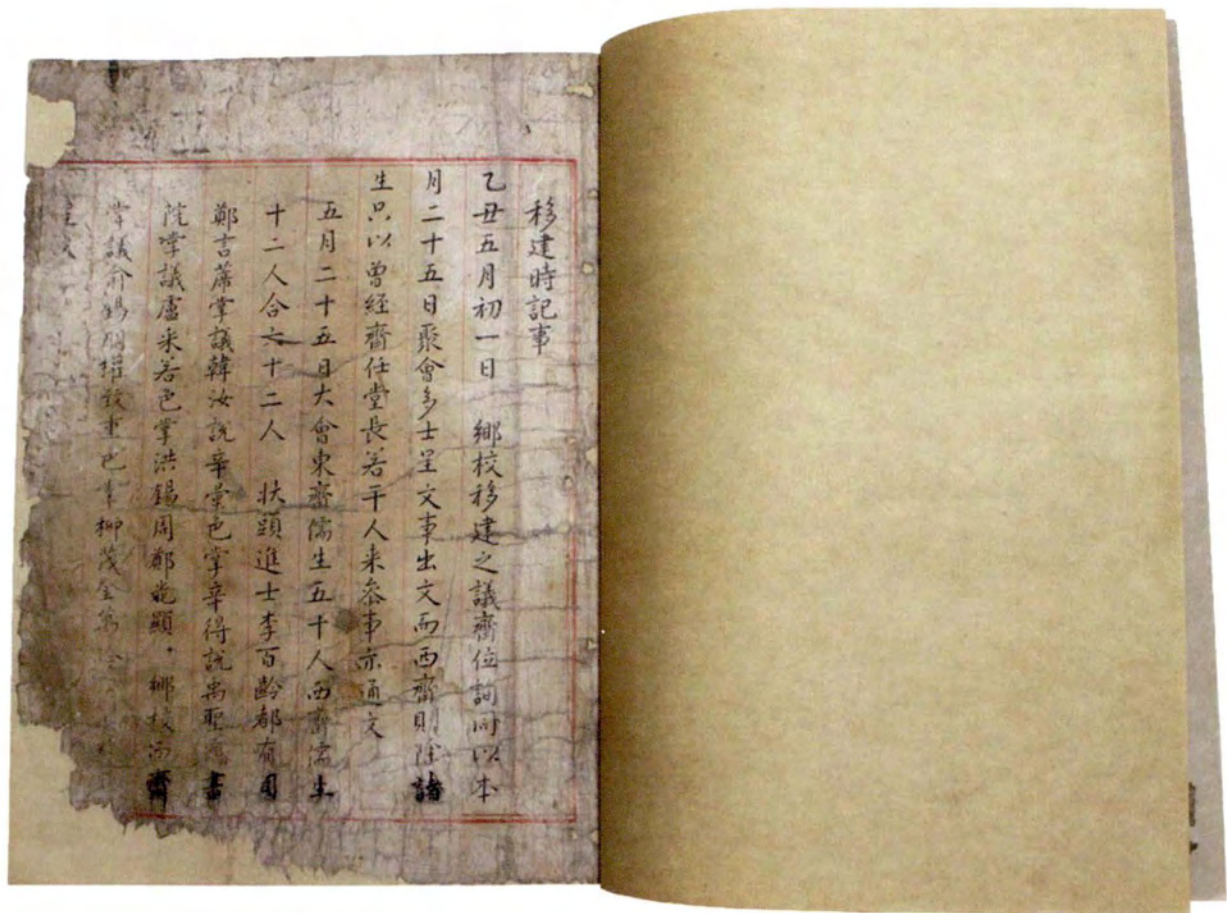 移建時記事
乙丑五月初一日 鄕校移建之議齋位詢同以本
月二十五日聚會多士呈文東出文而西齋則除諸
生只以曾経齋任堂長若干人来叅事亦通文
五月二十五日大會東齋儒生五十人西齋儒生
十二人合六十二人 狀頭進士李百齡都有司
鄭言藎掌議韓汝說辛彙色掌辛得說禹聖 書
院掌議盧采若色掌洪錫周鄭 顯 鄕校西齋
掌議兪錫朋權 重色掌柳茂全